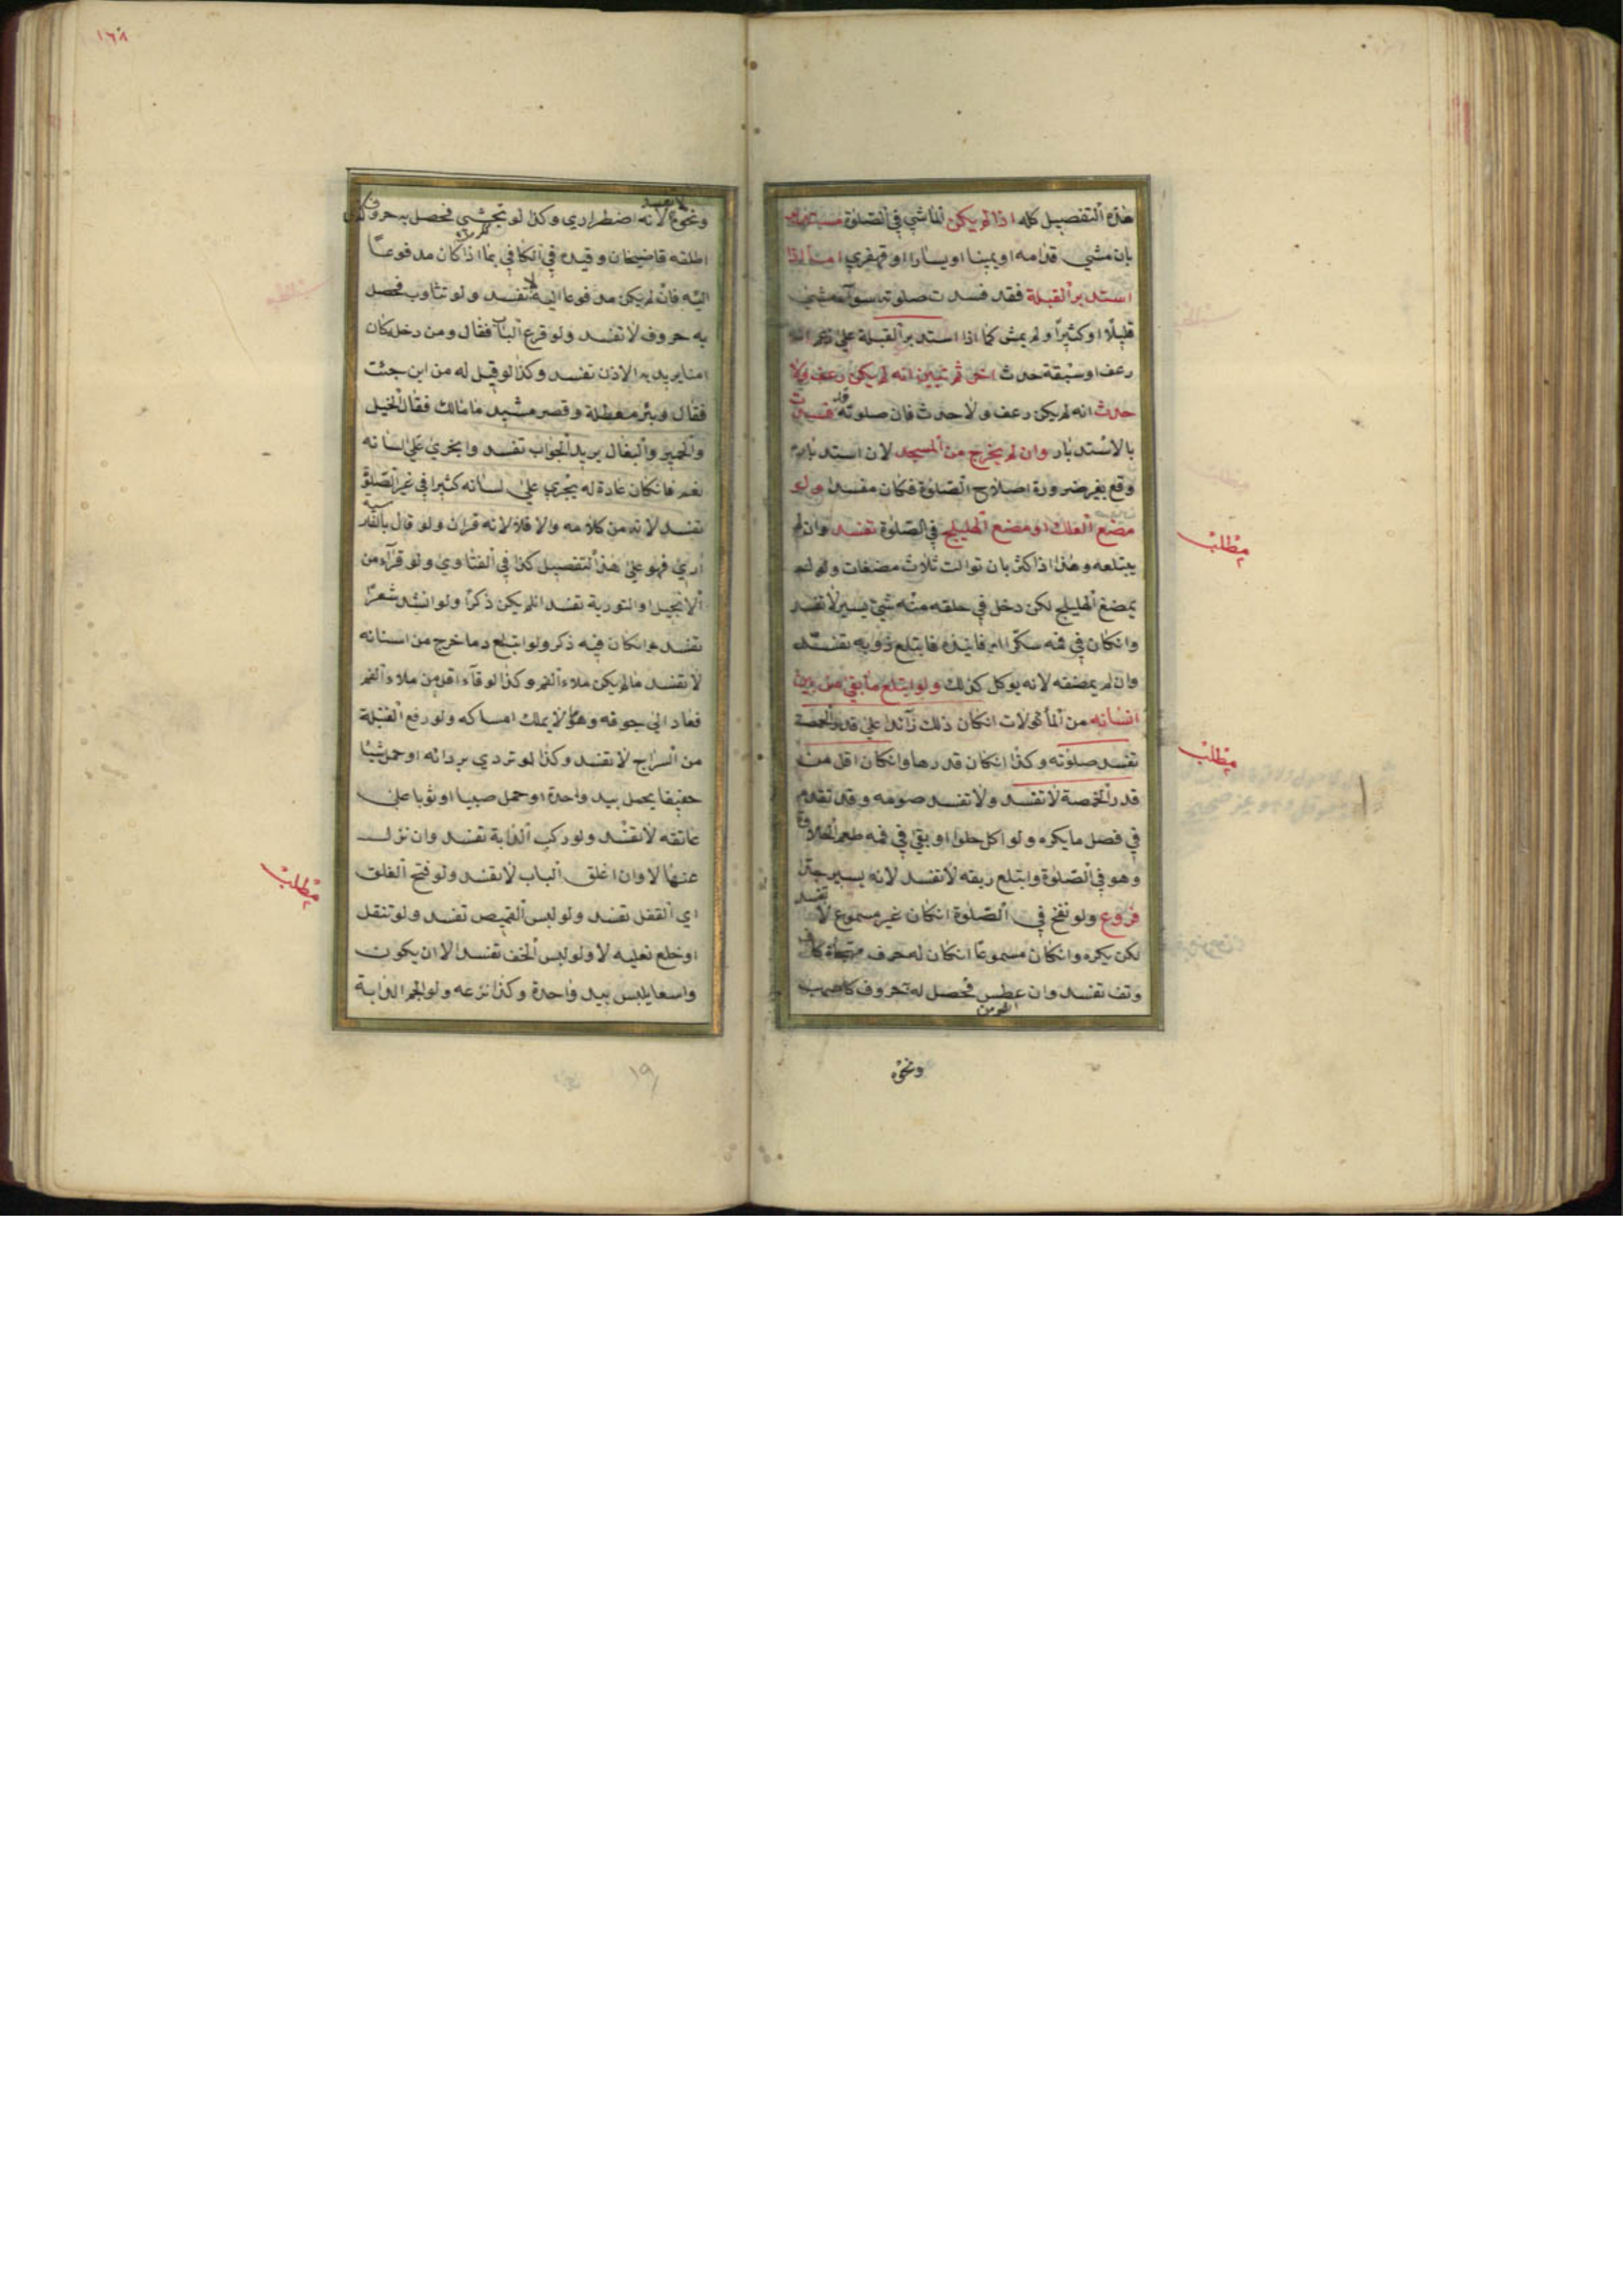 هذه التفصيل كله اذا لم يكن الماشي في الصلوة مستدبرا
بان مشي قدامه او يمينا او يسارا او قهقري اما اذا
استدبر القبلة فقد فسدت صلوته سواء مشي
قليلا او كثيرا ولم يمش كما اذا استدبر القبلة علي زعم انه
رعف او سبقة حدث اخر ثم تبين انه لم يكن رعف ولا
حدث انه لم يكن رعف ولا حدث فان صلوته قد فسدت
بالاستدبار وان لم يخرج من المسجد لان استدباره
وقع بغير ضرورة اصلاح الصلوة فكان مفسدا ولو
مضغ العلك او مضغ الهليلج في الصلوة تفسد وان لم
يبتلعه وهذا اذا كثر بان توالت ثلاث مضغات ولو لم
يمضغ الهليلج لكن دخل في حلقه منه شئ يسير لا تفسد
وانكان في فمه سكر او فانيذه فابتلع ذوبه تفسد
وان لم يمضغه لانه يوكل كذلك ولو ابتلع ما بقي من بين
اسنانه من المأكولات انكان ذلك زآئدا علي قدر الحمصة
تفسد صلوته وكذا انكان قدرها وانكان اقل من
قدر الحمصة لا تفسد ولا تفسد صومه وقد تقدم
في فصل ما يكره ولو اكل حلوا او بقي في فمه طعم الحلاوة
وهو في الصلوة وابتلع ريقه لا تفسد لانه يسير جدا
فروع ولو نفخ في الصلوة انكان غير مسموع لا تفسد
لكن يكره وانكان مسموعا انكان له حرف مهجاة كاف
وتف تفسد وان عطس فحصل له حروف كاصهب
ونحوه
مطلب
مطلب
١٦٨
ونحوه لا تفسد لانه اضطراري وكذا لو تجشى فحصل به حروف
اطلقه قاضيخان وقيده في الكافي بما اذا كان مدفوعا
اليه فان لم يكن مدفوعا اليه تفسد ولو تثاوب فحصل
به حروف لا تفسد ولو قرع الباب فقال ومن دخله كان
امنا يريد به الاذن تفسد وكذا لو قيل له من اين جئت
فقال وبئر معطلة وقصر مشيد ما مالك فقال الخيل
والحمير والبغال يريد الجواب تفسد وان جري علي لسانه
نعم فانكان عادة له يجري علي لسانه كثيرا في غير الصلوة
تفسد لانه من كلامه والا فلا لانه قران ولو قال بالفارسية
اري فهو علي هذا التفصيل كذا في الفتاوي ولو قرآء من
الانجيل او التورية تفسد ان لم يكن ذكرا ولو انشد شعرا
تفسد وانكان فيه ذكر ولو ابتلع دما خرج من اسنانه
لا تفسد ما لم يكن ملاء الفم وكذا لو قآء اقل من ملاء الفم
فعاد الي جوفه وهو لا يملك امساكه ولو رفع الفتيلة
من السراج لا تفسد وكذا لو تردي بردائه او حمل شيئا
خفيفا يحمل بيد واحدة او حمل صبيا او ثوبا علي
عاتقه لا تفسد ولو ركب الدابة تفسد وان نزل
عنها لا وان اغلق الباب لا تفسد ولو فتح الغلق
اي القفل تفسد ولو لبس القميص تفسد ولو تنقل
او خلع نعليه لا ولو لبس الخف تفسد الا ان يكون
واسعا يلبس بيد واحدة وكذا نزعه ولو الجم الدابة
مطلب
١٩